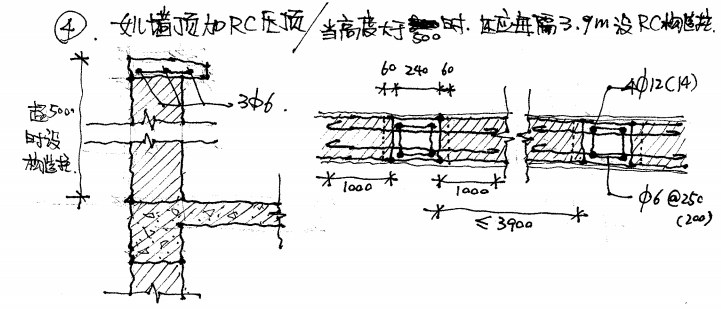 ④. 女儿墙顶加RC压顶/当高度大于500时.还应每隔3.9m设RC构造柱.
60 240 60
4φ12(14)
3φ6.
超500
时设
构造柱.
1000 1000
φ6@250
(200)
≤3900